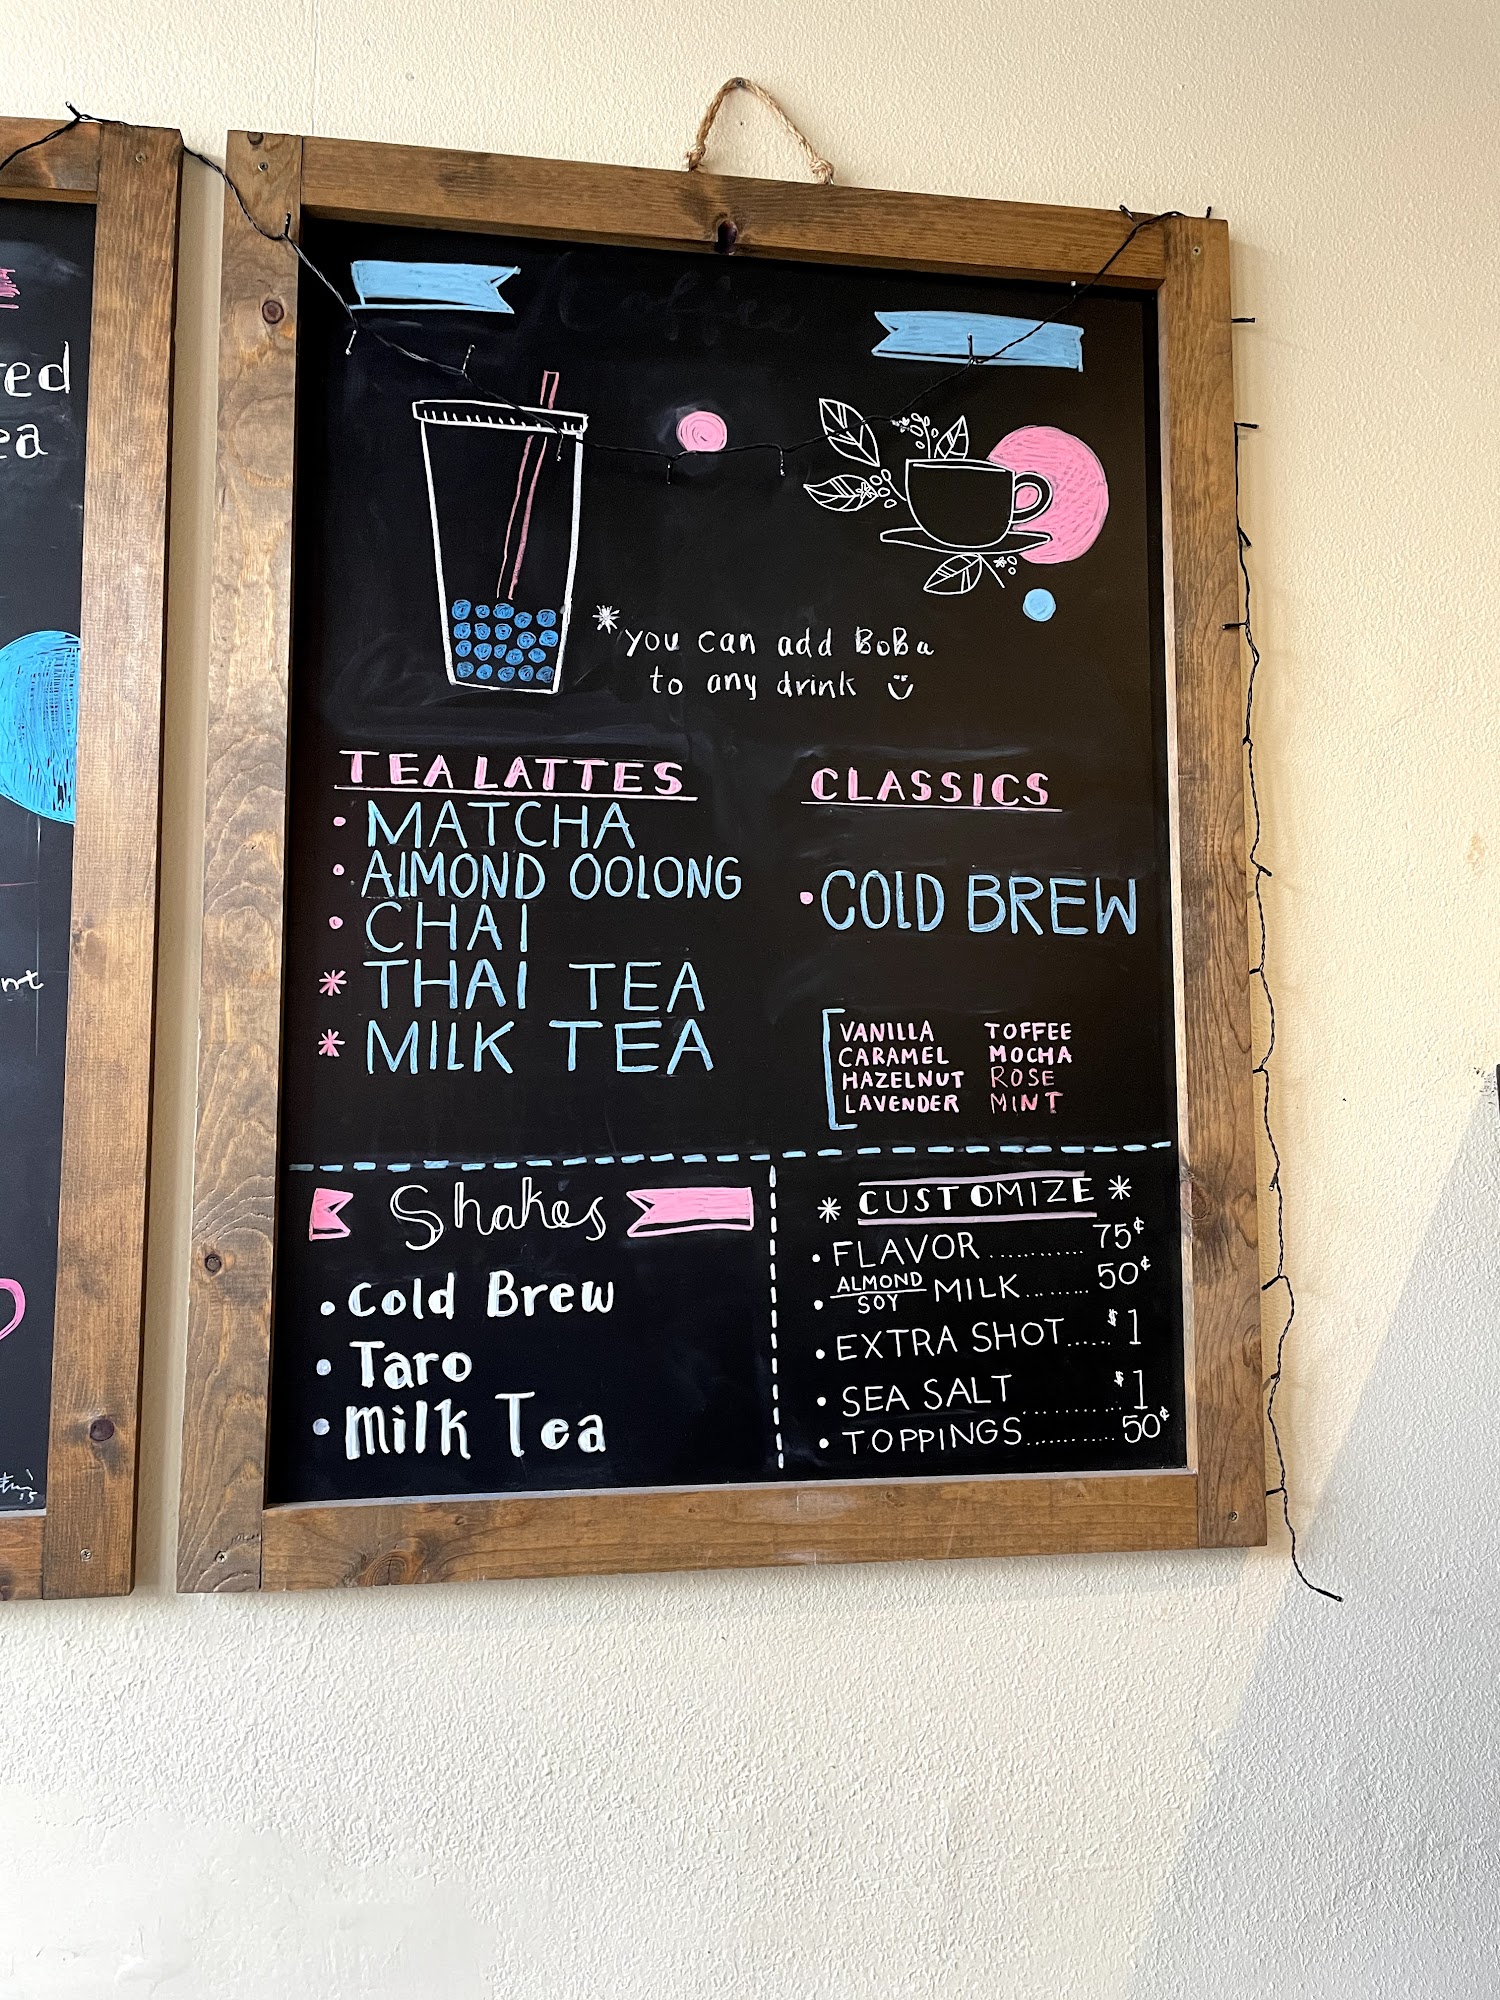 Coffee
*you can add BoBa
to any drink
TEA LATTES
• MATCHA
• ALMOND OOLONG
• CHAI
* THAI TEA
* MILK TEA
CLASSICS
• COLD BREW
VANILLA TOFFEE
CARAMEL MOCHA
HAZELNUT ROSE
LAVENDER MINT
Shakes
• Cold Brew
• Taro
• Milk Tea
* CUSTOMIZE *
• FLAVOR ............ 75¢
• ALMOND
SOY MILK ......... 50¢
• EXTRA SHOT ...... $1
• SEA SALT ........... $1
• TOPPINGS ........... 50¢